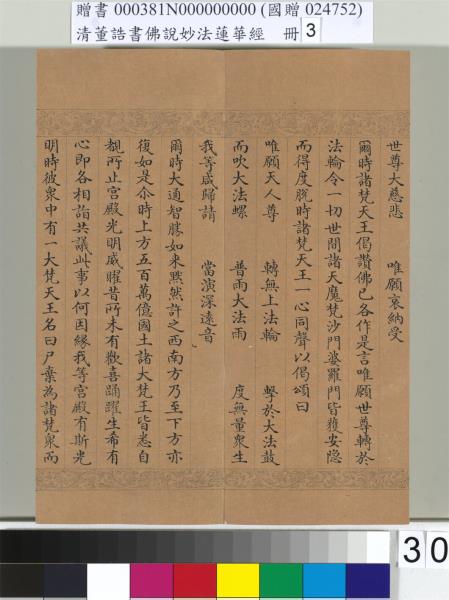 贈書 000381N000000000 (國贈 024752)
清董誥書佛說妙法蓮華經 冊 3
世尊大慈悲 唯願哀納受
爾時諸梵天王偈讚佛已各作是言唯願世尊轉於
法輪令一切世間諸天魔梵沙門婆羅門皆獲安隱
而得度脫時諸梵天王一心同聲以偈頌曰
唯願天人尊 轉無上法輪 擊於大法鼓
而吹大法螺 普雨大法雨 度無量眾生
我等咸歸請 當演深遠音
爾時大通智勝如來默然許之西南方乃至下方亦
復如是尒時上方五百萬億國土諸大梵王皆悉自
覩所止宮殿光明威曜昔所未有歡喜踊躍生希有
心即各相詣共議此事以何因緣我等宮殿有斯光
明時彼眾中有一大梵天王名曰尸棄為諸梵眾而
30